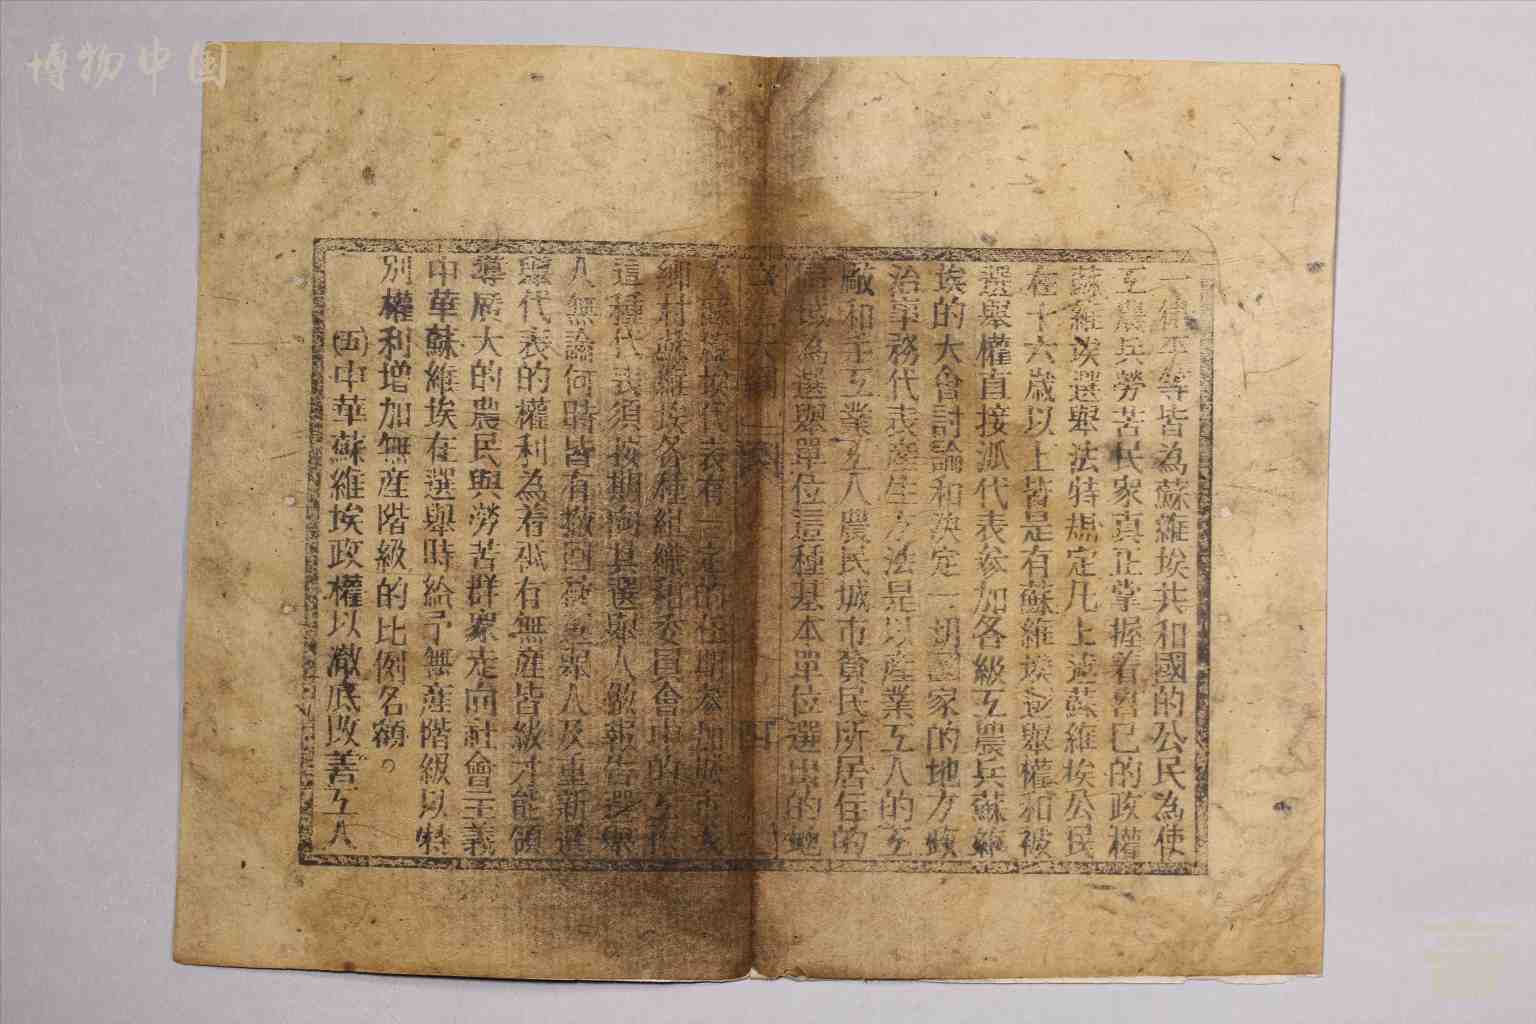 博物中国
一律平等皆為蘇維埃共和國的公民為使
工農兵勞苦民眾真正掌握着自己的政權
蘇維埃選舉法特規定凡上述蘇維埃公民
在十六歲以上皆是有蘇維埃選舉權和被
選舉權直接派代表參加各級工農兵蘇維
埃的大會討論和決定一切國家的地方政
治事務代表產生方法是以產業工人的工
廠和手工業工人農民城市貧民所居住的
區域為選舉單位這種基本單位選出的地
方蘇維埃代表有一定的任期參加城市或
鄉村蘇維埃各種組織和委員會中的工作
這種代表須按期向其選舉人做報告選舉
人無論何時皆有撤回被選舉人及重新選
舉代表的權利為着祇有無產皆級才能領
導廣大的農民與勞苦群眾走向社會主義
中華蘇維埃在選舉時給予無產階級以特
別權利增加無產階級的比例名額。
(五)中華蘇維埃政權以澈底改善工人